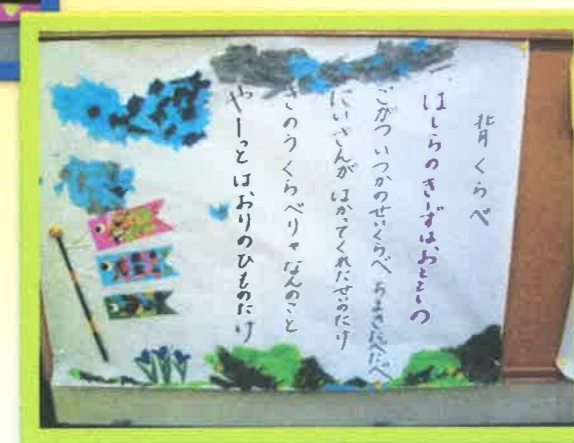 背くらべ
はしらのきーずはおととしの
ごがついつかのせいくらべ ちまきたべたべ
にいさんが はかってくれたせいのたけ
きのうくらべりゃなんのこと
やーっと はおりのひものたけ